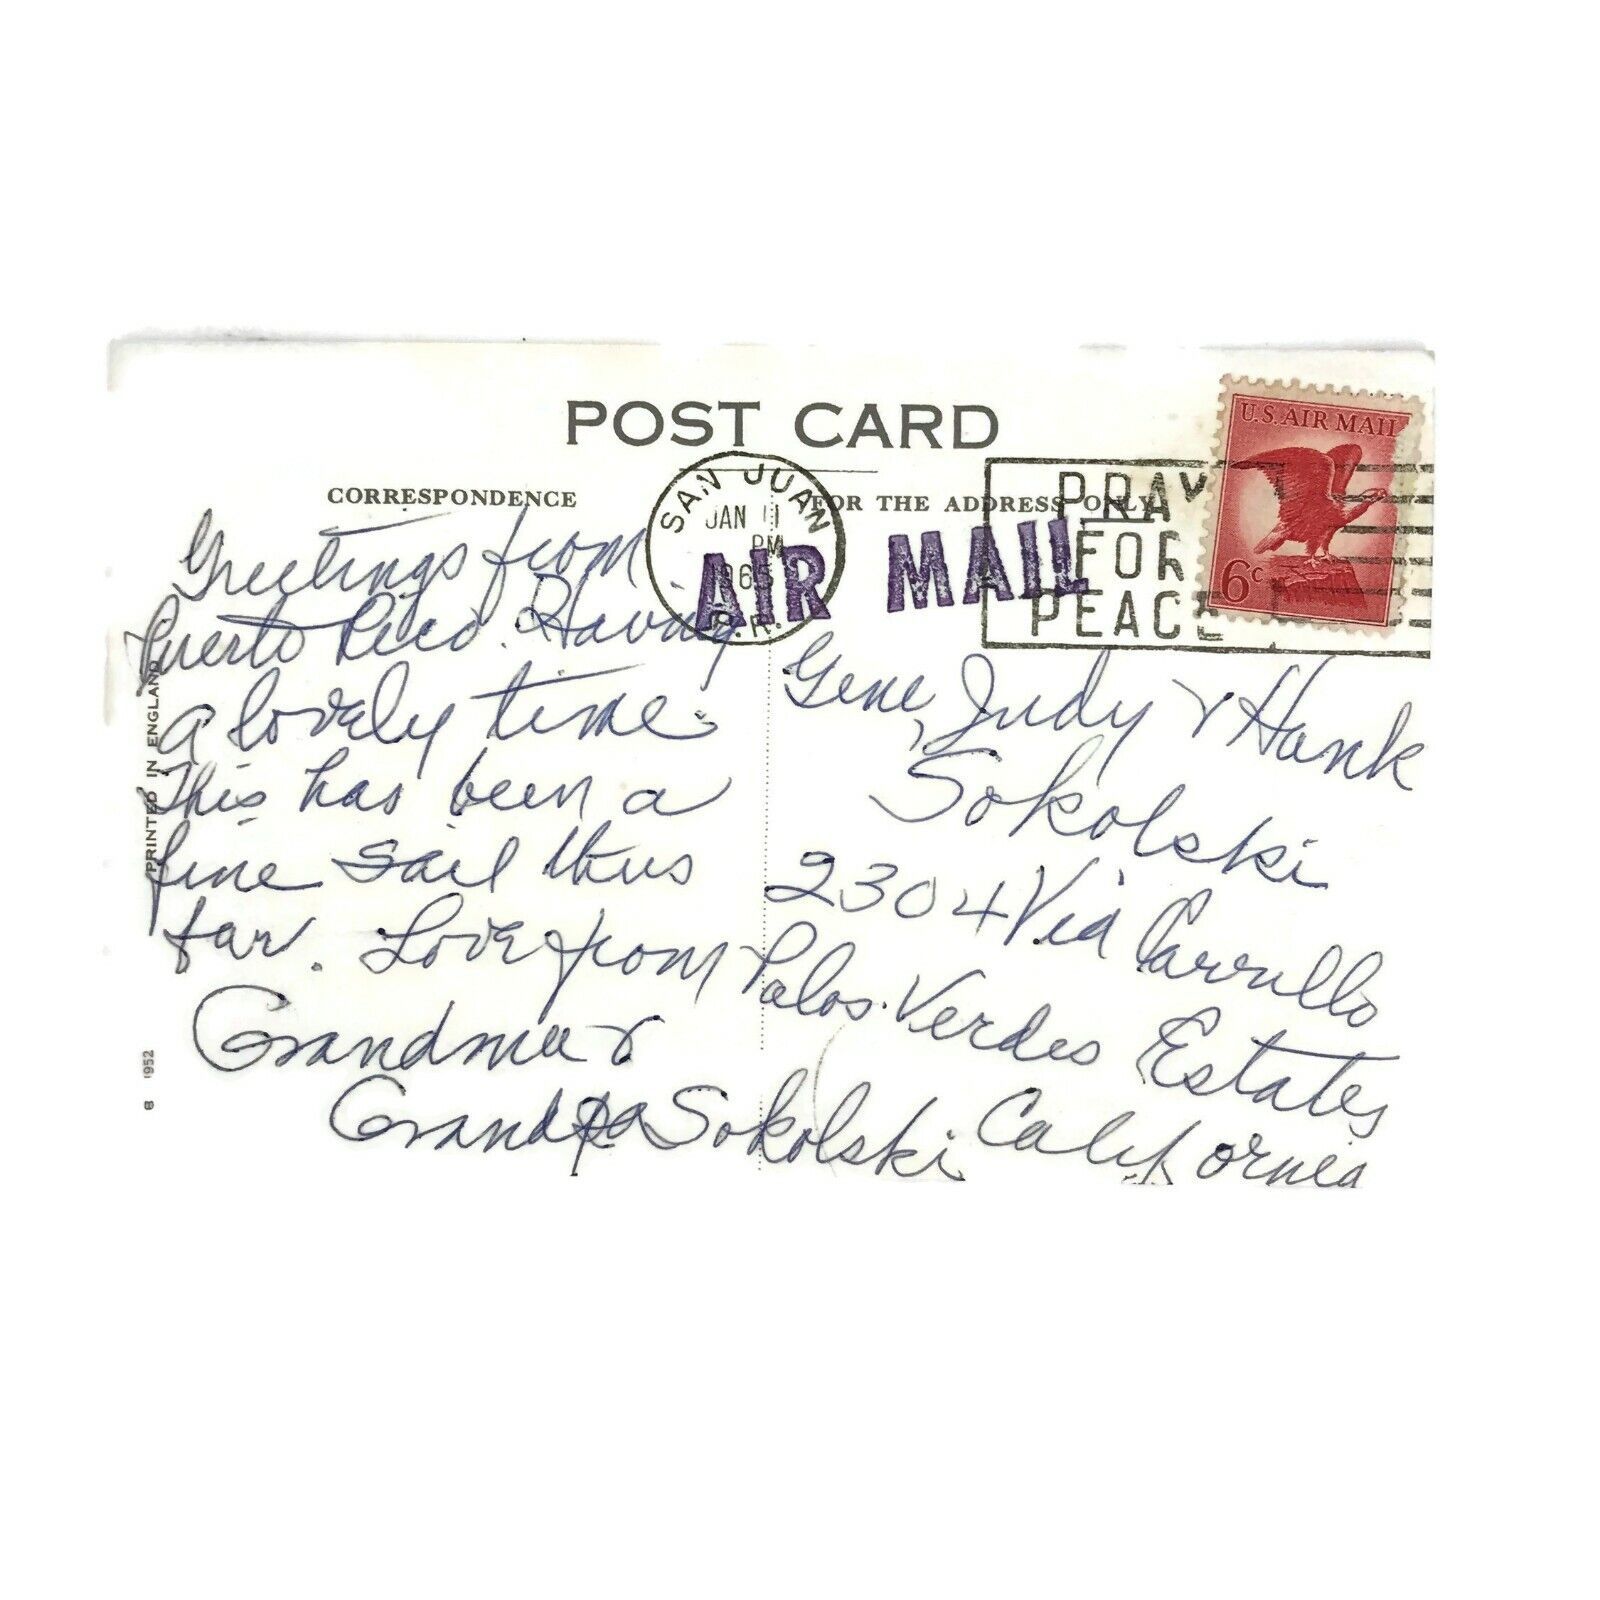 POST CARD
CORRESPONDENCE
FOR THE ADDRESS ONLY
SAN JUAN
JAN 11
PM
1965
P.R.
AIR MAIL
PRAY
FOR
PEACE
U.S. AIR MAIL
6c
Greetings from
Puerto Rico. Having
a lovely time.
This has been a
fine sail thus
far. Love from
Grandma &
Grandpa Sokolski
Gene, Judy & Hank
Sokolski
2304 Via Carrillo
Palos Verdes Estates
California
PRINTED IN ENGLAND
8 1952